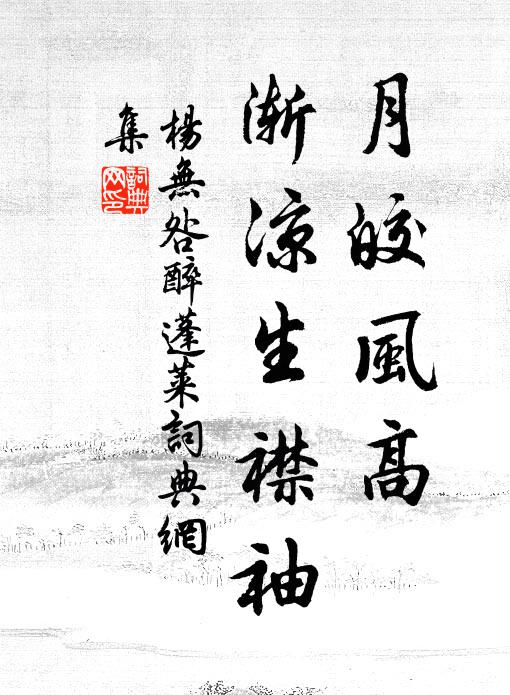 月皎風高
漸涼生襟袖
楊無咎醉蓬萊詞典網
集
詞典
网印